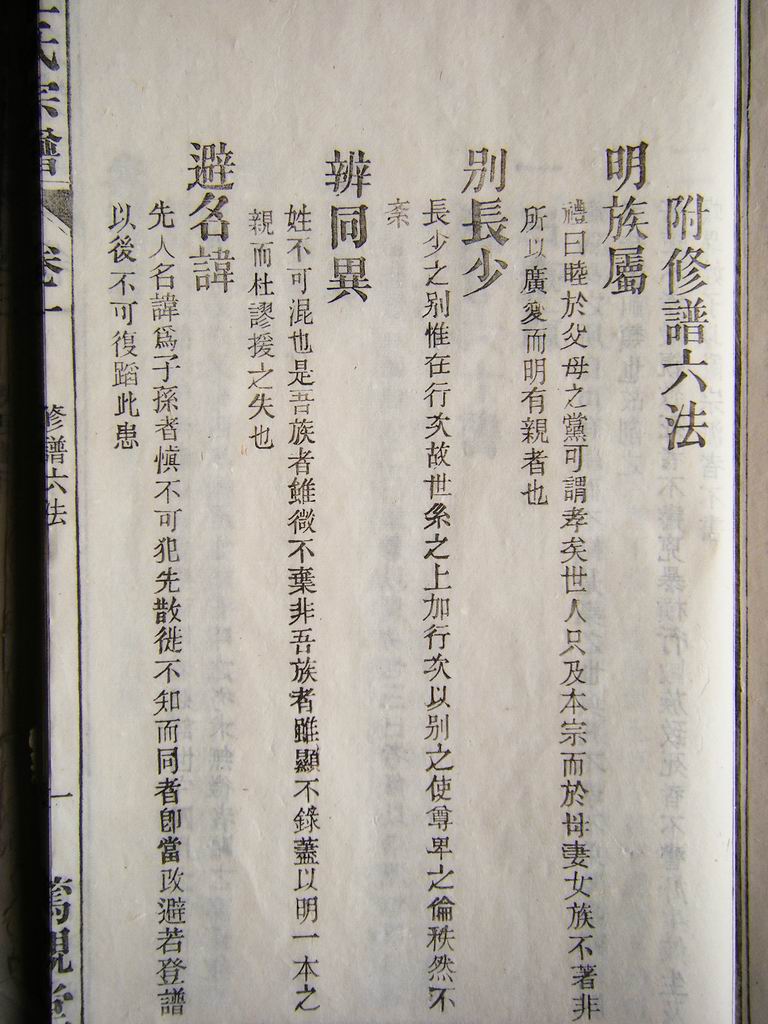 附修譜六法
明族屬
禮曰睦於父母之黨可謂孝矣世人只及本宗而於母妻女族不著非
所以廣愛而明有親者也
別長少
長少之別惟在行次故世系之上加行次以別之使尊卑之倫秩然不
紊
辨同異
姓不可混也是吾族者雖微不棄非吾族者雖顯不錄蓋以明一本之
親而杜謬援之失也
避名諱
先人名諱爲子孫者慎不可犯先散徙不知而同者卽當改避若登譜
以後不可復蹈此患
氏宗譜
卷一
修譜六法
一
篤親堂